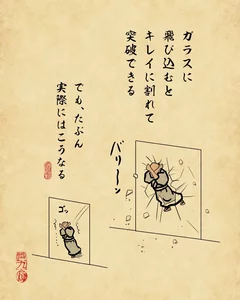 ガラスに
飛び込むと
キレイに割れて
突破できる
バリーーン
でも、たぶん
実際にはこうなる
ゴッ